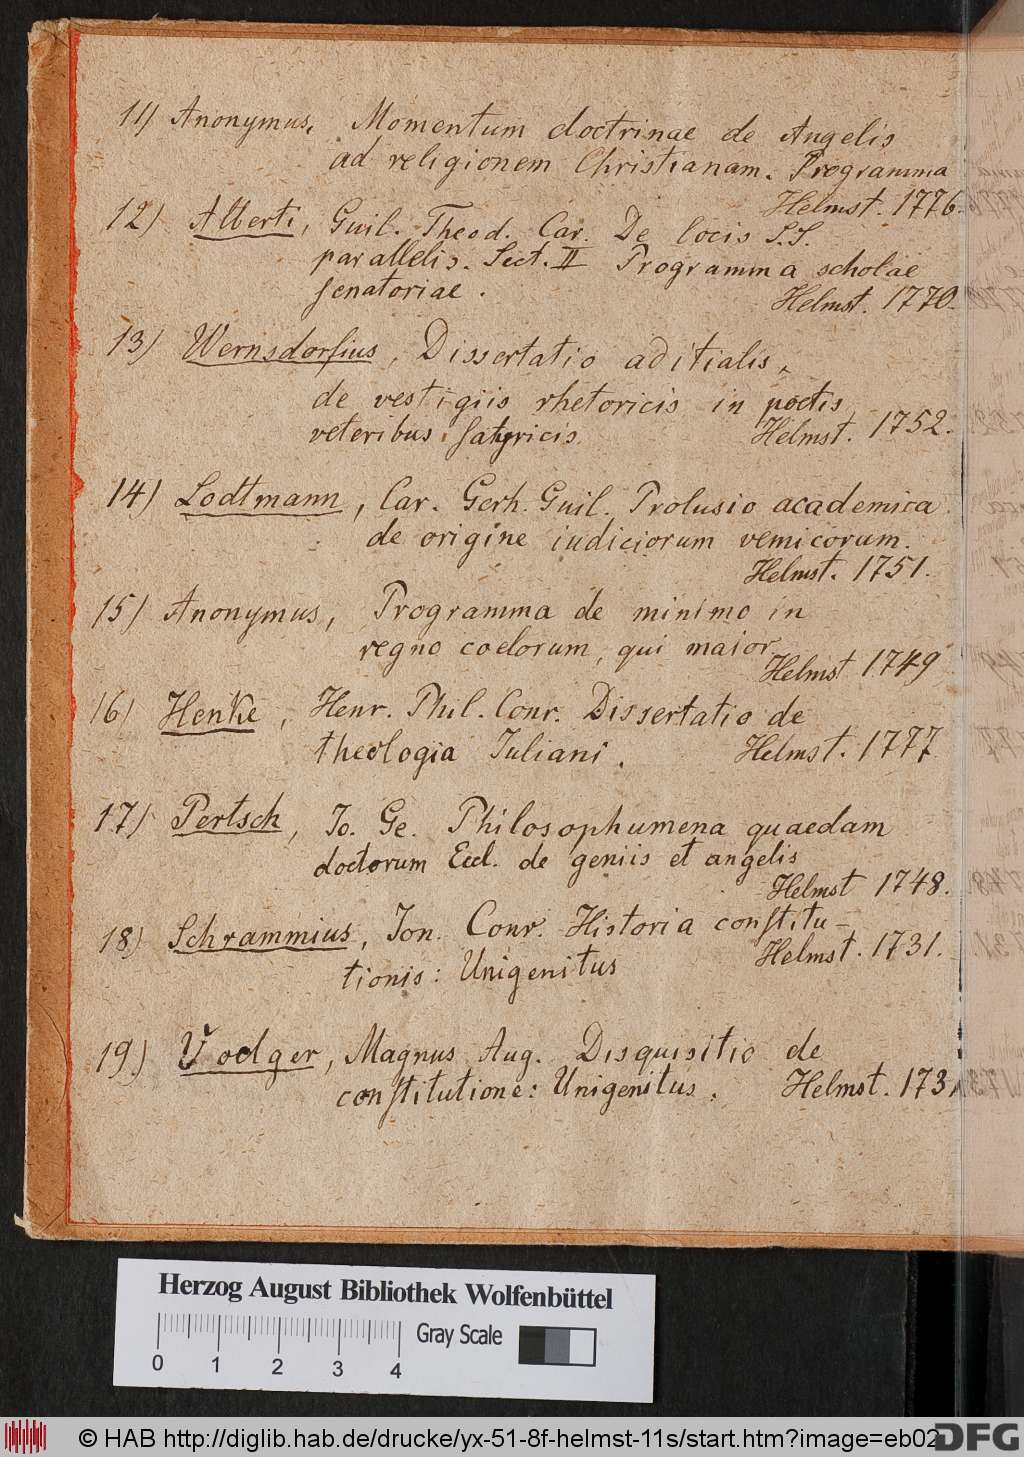 11) Anonymus. Momentum doctrinae de Angelis
ad religionem Christianam. Programma
Helmst. 1776.
12) Alberti, Guil. Theod. Car. De locis S.S.
parallelis. Sect. II Programma scholae
senatoriae. Helmst. 1770.
13) Wernsdorfius, Dissertatio aditialis,
de vestigiis rhetoricis in poetis
veteribus satyricis. Helmst. 1752.
14) Lodtmann, Car. Gerh. Guil. Prolusio academica
de origine iudiciorum vemicorum.
Helmst. 1751.
15) Anonymus, Programma de minimo in
regno coelorum, qui maior
Helmst 1749
16) Henke, Henr. Phil. Conr. Dissertatio de
theologia Iuliani. Helmst. 1777
17) Pertsch, Io. Ge. Philosophumena quaedam
doctorum Eccl. de geniis et angelis
Helmst 1748.
18) Schrammius, Ion. Conr. Historia constitu-
tionis: Unigenitus Helmst. 1731.
19.) Vodger, Magnus Aug. Disquisitio de
constitutione: Unigenitus. Helmst. 1731
Herzog August Bibliothek Wolfenbüttel
Gray Scale
0 1 2 3 4
© HAB http://diglib.hab.de/drucke/yx-51-8f-helmst-11s/start.htm?image=eb02
DFG